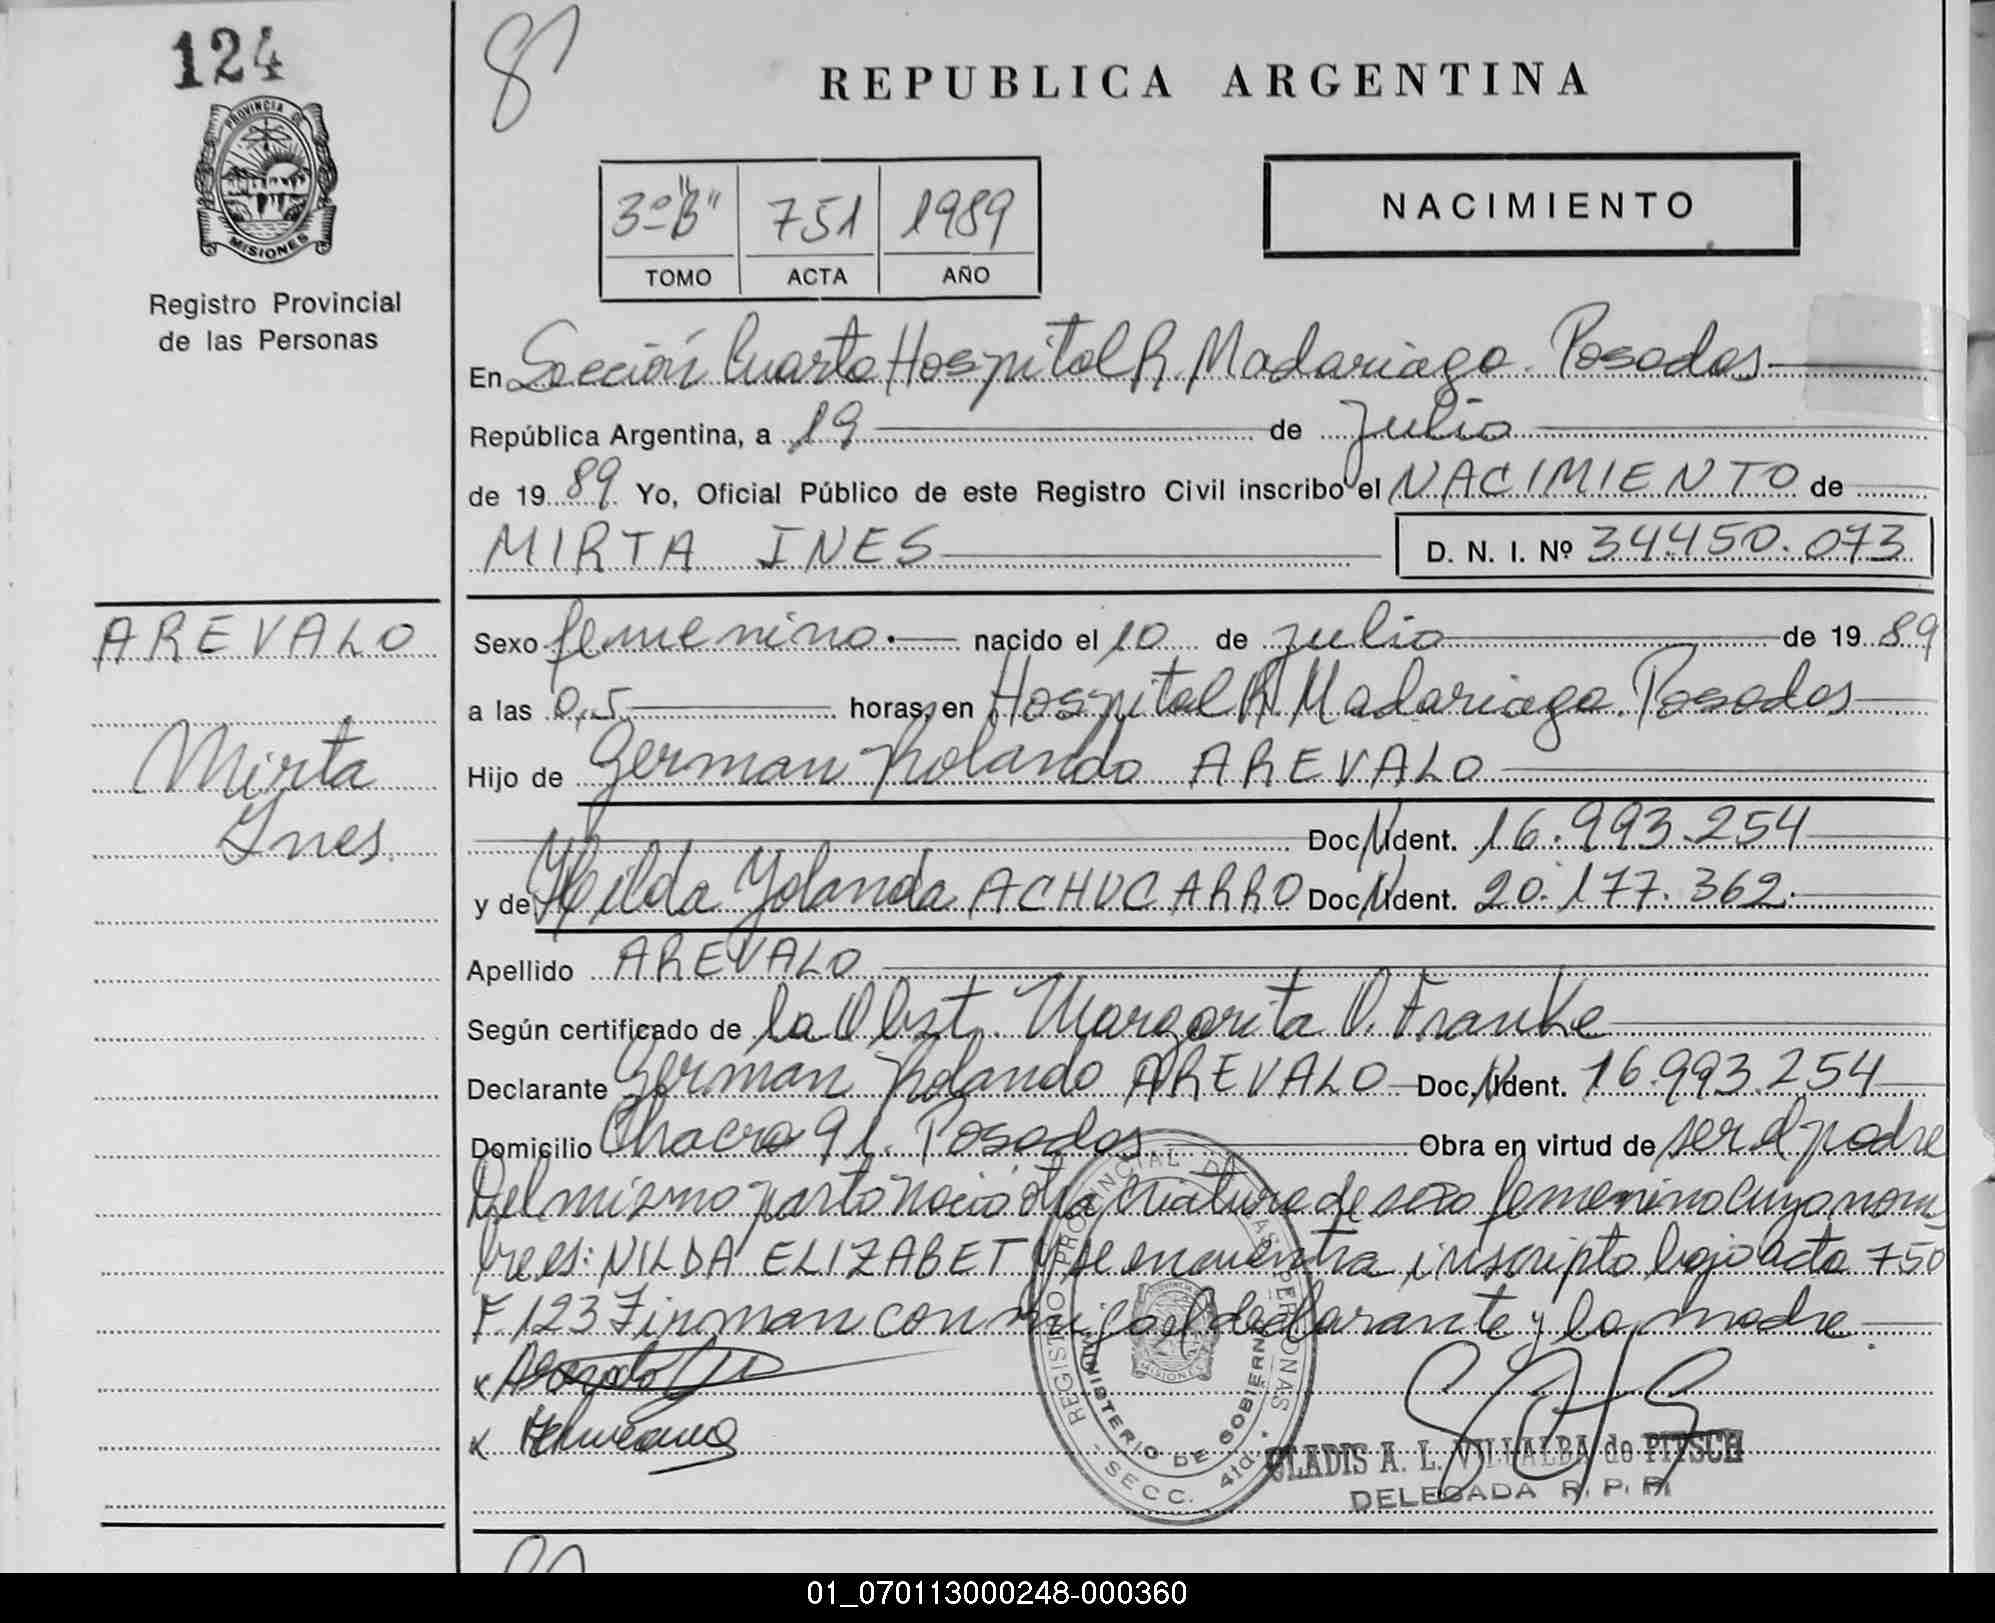 124
8
REPUBLICA ARGENTINA
PROVINCIA DE
MISIONES
Registro Provincial
de las Personas
3º "B" 751 1989
TOMO ACTA AÑO
NACIMIENTO
En Sección Cuarta Hospital R. Madariaga. Posadas
República Argentina, a 19 de Julio
de 19 89 Yo, Oficial Público de este Registro Civil inscribo el NACIMIENTO de
MIRTA INES D. N. I. Nº 34.450.073
AREVALO
Mirta
Ines.
Sexo femenino. nacido el 10 de julio de 19 89
a las 0,5 horas, en Hospital R. Madariaga. Posadas
Hijo de German Rolando AREVALO
Doc. Ident. 16.993.254
y de Hilda Yolanda ACHUCARRO Doc. Ident. 20.177.362.
Apellido AREVALO
Según certificado de la Obst. Margarita O. Franke
Declarante German Rolando AREVALO Doc. Ident. 16.993.254
Domicilio Chacra 91. Posadas Obra en virtud de ser el padre
Del mismo parto nacio otra criatura de sexo femenino cuyo nom
bre es: NILDA ELIZABET y se encuentra inscripta bajo acta 750
F. 123 Firman conmigo el declarante y la madre.
x
x
REGISTRO PROVINCIAL DE LAS PERSONAS
MINISTERIO DE GOBIERNO
SECC. 4ta.
GLADIS A. L. VILLALBA de PITSCH
DELEGADA R. P. P.
01_070113000248-000360